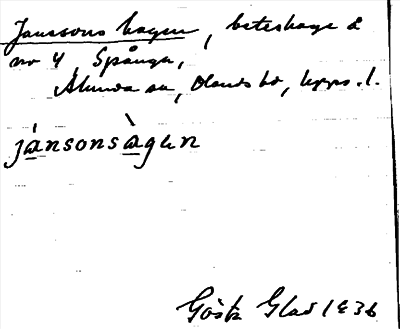 Janssons hagen, beteshage å
no 4, Spånga,
Ålunda sn, Olands hd, Upps. l.
jánsonsàgen
Gösta Glad 1936